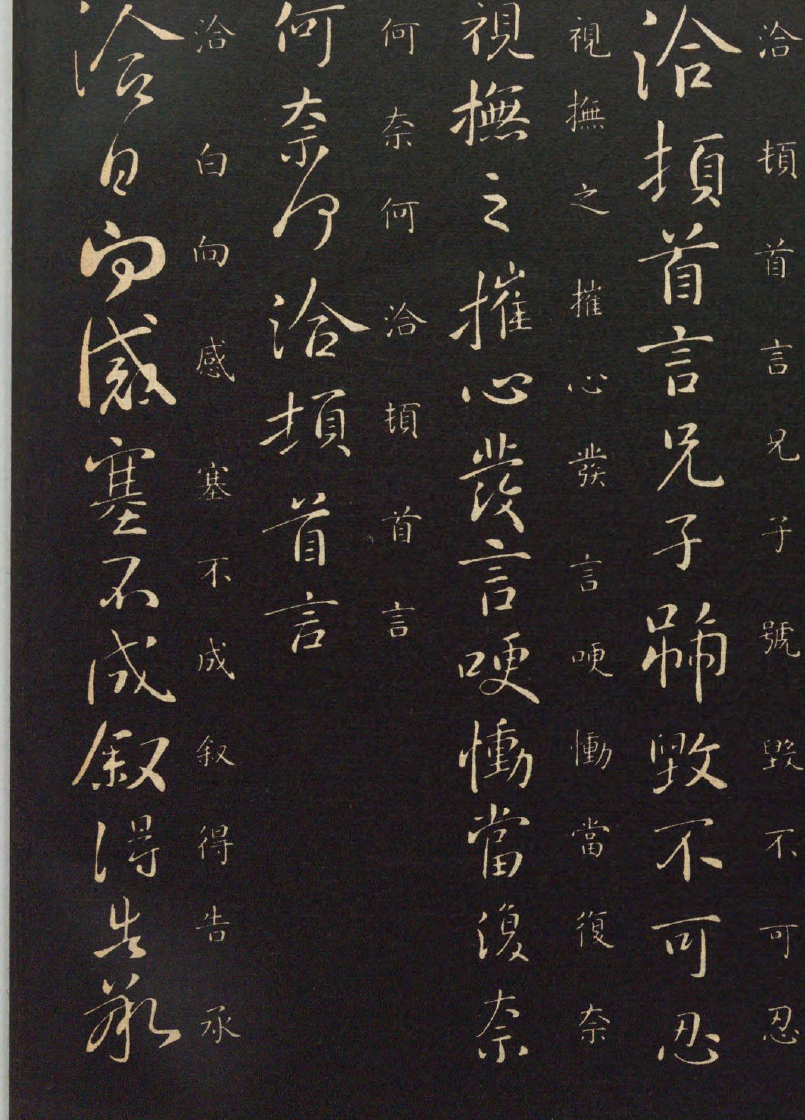 洽頓首言兄子號毀不可忍
洽頓首言兄子號毀不可忍
視撫之摧心發言哽慟當復奈
視撫之摧心發言哽慟當復奈
何奈何洽頓首言
何奈何洽頓首言
洽白向感塞不成叙得告承
洽白向感塞不成叙得告承